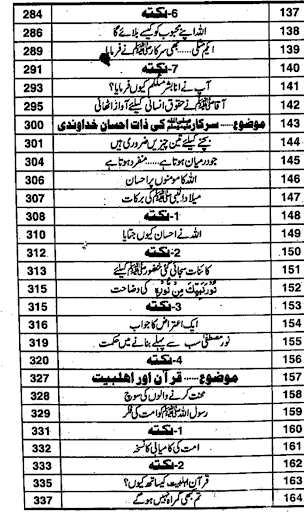 137 6-نکتہ 284
138 اللہ اپنے محبوب کو کیسے بلائے گا 286
139 ایٹم سکی...... بھی سرکارﷺ نے فرمایا 289
140 7-نکتہ 291
141 آپ نے انا بشر مثلکم کیوں فرمایا؟ 293
142 آقاﷺ نے حقوق انسانی کیلئے آواز اٹھائی 295
143 موضوع...... سرکارﷺ کی ذات احسان خداوندی 300
144 بچنے کیلئے تین چیزیں ضروری ہیں 301
145 جو درمیان ہوتا ہے...... منفرد ہوتا ہے 304
146 اللہ کا مومنوں پر احسان 306
147 میلاد النبیﷺ کی برکات 307
148 1-نکتہ 308
149 اللہ نے احسان کیوں جتایا 310
150 2-نکتہ 312
151 کائنات سجائی گئی حضورﷺ کیلئے 313
152 نُوْرُ نَبِیِّکَ مِنْ نُّوْرِہٖ کی وضاحت 315
153 3-نکتہ 315
154 ایک اعتراض کا جواب 316
155 نور مصطفیٰ سب سے پہلے بنانے میں حکمت 319
156 4-نکتہ 320
157 موضوع...... قرآن اور اهلبیت 327
158 محنت کرنے والوں کی سوچ 328
159 رسول اللہﷺ کو امت کی فکر 329
160 1-نکتہ 331
161 امت کی کامیابی کا نسخہ 332
162 2-نکتہ 333
163 قرآن اہلبیت کیساتھ کیوں؟ 335
164 تم بھی گمراہ نہیں ہو گے 337